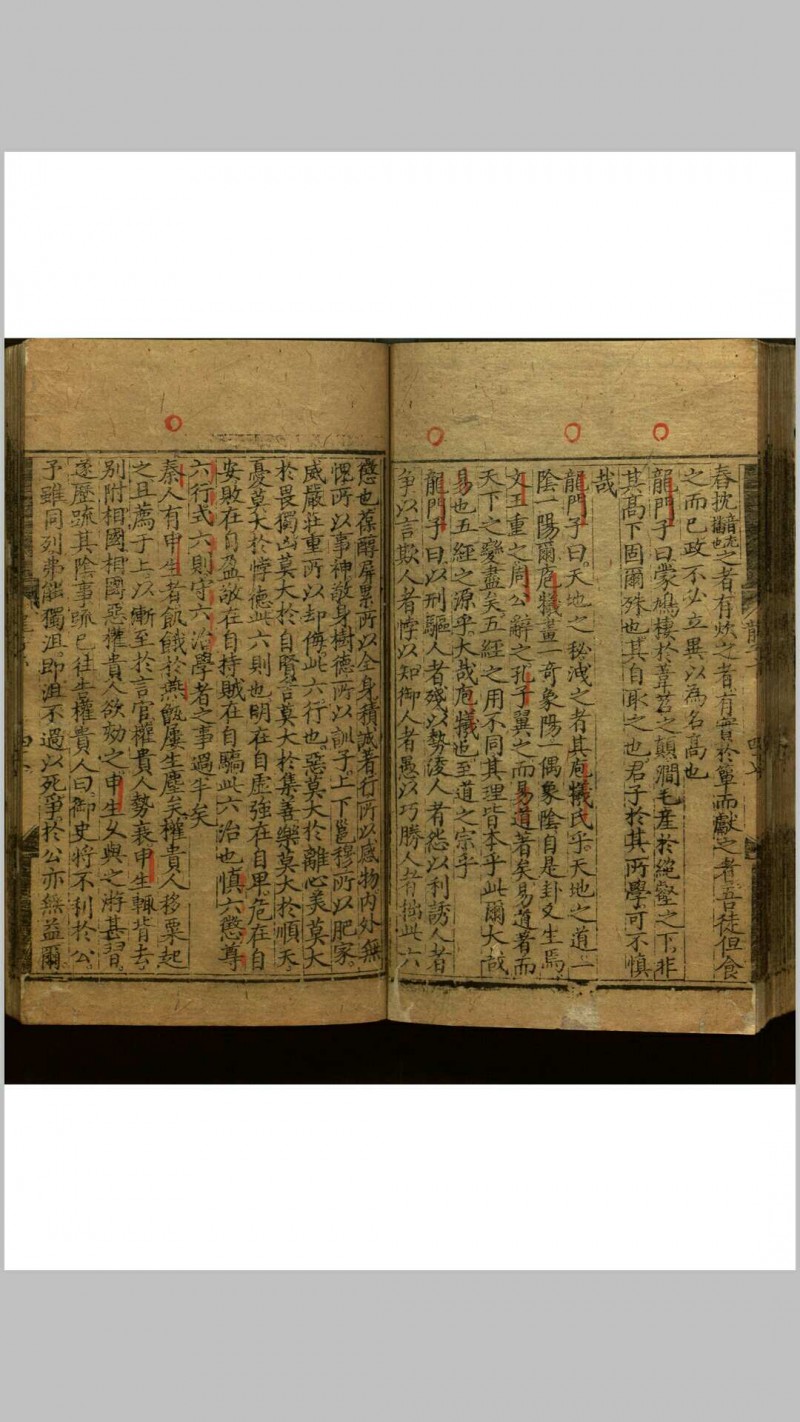 舂抌之者有炊之者有賫於簞而獻之者吾徒但食
之而已政不必立異以為名髙也
龍門子曰蒙鳩棲於葦苕之顛澗毛産於絶壑之下非
其髙下固爾殊也其自取之也君子於其所學可不慎
哉
龍門子曰天地之秘洩之者其庖犧氏乎天地之道一
陰一陽爾庖犧畫一奇象陽一偶象陰自是卦爻生焉
文王重之周公辭之孔子翼之而易道著矣易道著而
天下之變盡矣五經之用不同其理皆本乎此爾大哉
易也五經之源乎大哉庖犧也至道之宗乎
龍門子曰以刑驅人者殘以勢淩人者怨以利誘人者
争以言欺人者悖以知御人者愚以巧勝人者此六
也葆醇屏累所以全身積誠著行所以感物内外無
愧所以事神敬身樹德所以訓子上下邕穆所以肥家
威嚴莊重所以却侮此六行也惡莫大於離心美莫大
於畏獨凶莫大於自賢吉莫大於集善樂莫大於順天
憂莫大於悖德此六則也明在自虚强在自畀危在自
安敗在自盈敵在自持賊在自驕此六治也慎六懲尊
六行式六則守六治學者之事過半矣
秦人有申生者飢餓於燕甑屢生塵矣權貴人移粟起
之且薦于上以漸至於言官權貴人勢衰申生輒背去
别附相國相國惡權貴人欲劾之申生乂與之游甚習
遂歴疏其隂事疏已往生權貴人曰御史將不利於公
予雖同列弗能獨沮即沮不過以死爭於公亦無益爾